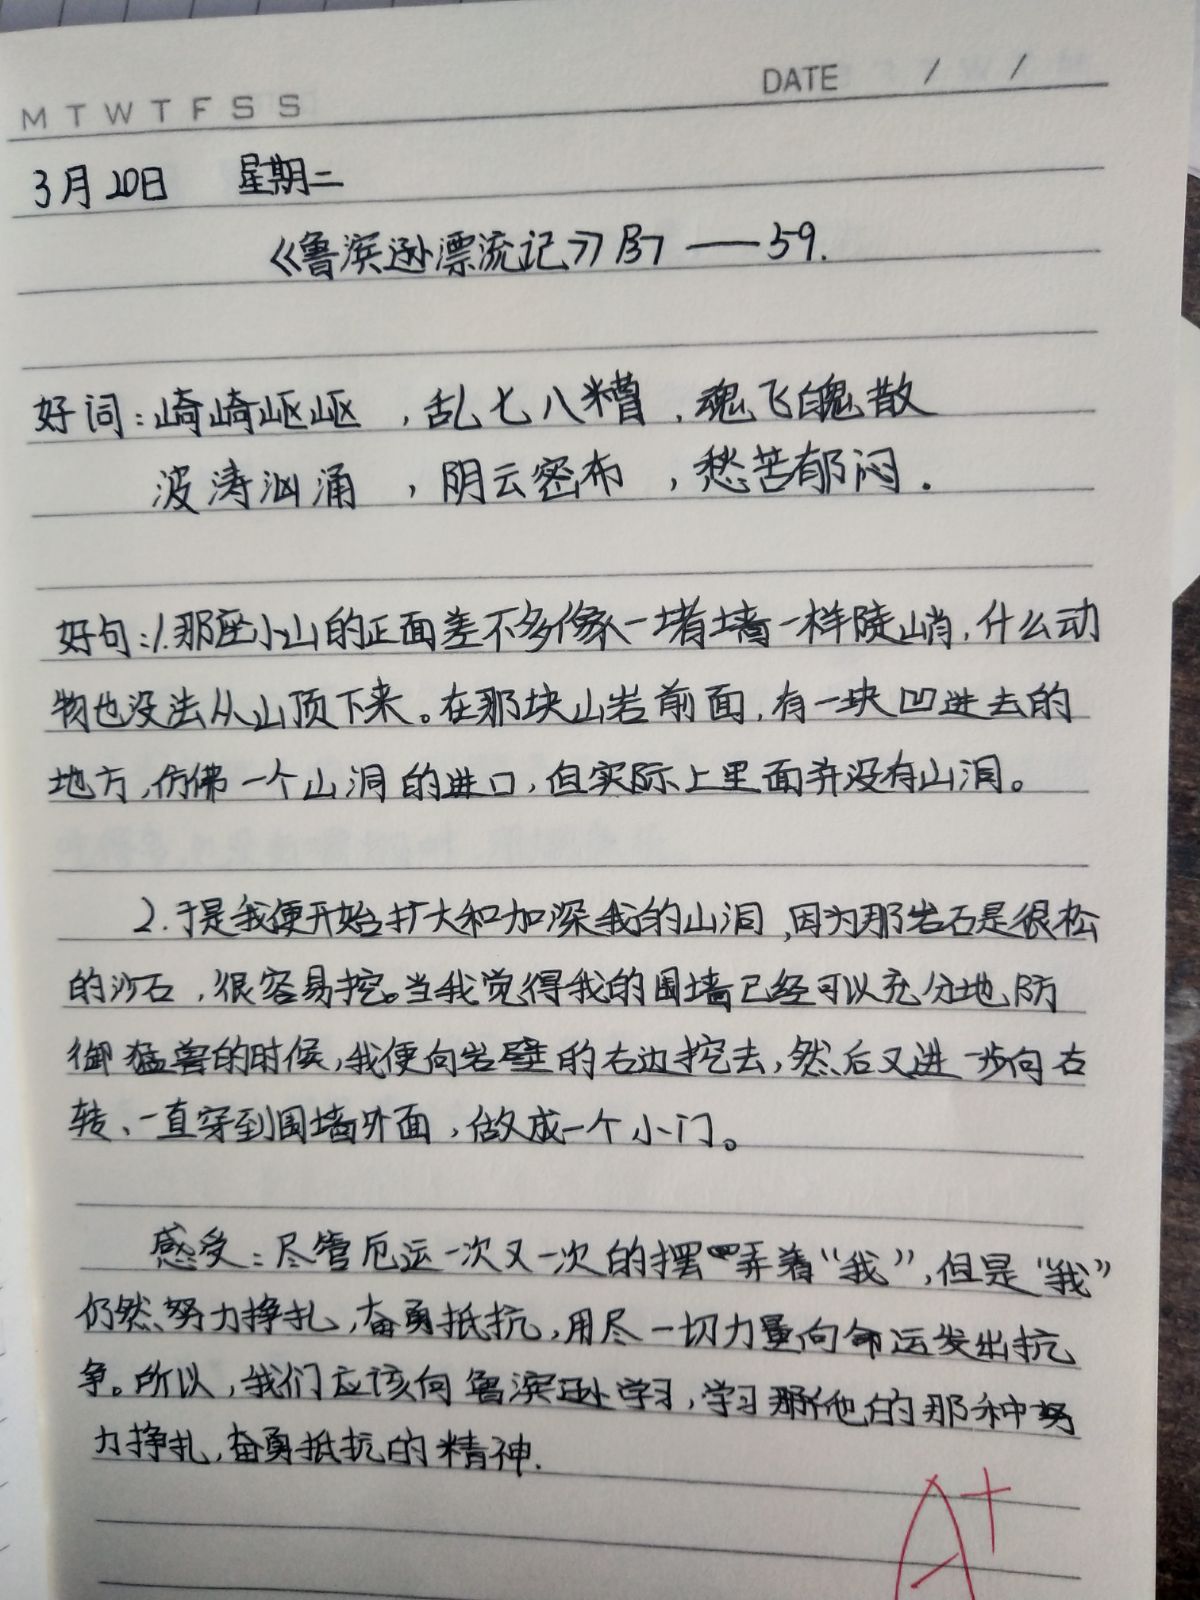 M T W T F S S
DATE / /
3月20日 星期二
《鲁滨逊漂流记》P37——59.
好词：崎崎岖岖，乱七八糟，魂飞魄散
波涛汹涌，阴云密布，愁苦郁闷.
好句：1.那座小山的正面差不多像一堵墙一样陡峭，什么动
物也没法从山顶下来。在那块山岩前面，有一块凹进去的
地方，仿佛一个山洞的进口，但实际上里面并没有山洞。
2.于是我便开始扩大和加深我的山洞，因为那岩石是很松
的沙石，很容易挖。当我觉得我的围墙已经可以充分地防
御猛兽的时候，我便向岩壁的右边挖去，然后又进一步向右
转、一直穿到围墙外面，做成一个小门。
感受：尽管厄运一次又一次的摆弄着“我”，但是“我”
仍然努力挣扎，奋勇抵抗，用尽一切力量向命运发出抗
争。所以，我们应该向鲁滨逊学习，学习他的那种努
力挣扎，奋勇抵抗的精神.
A+